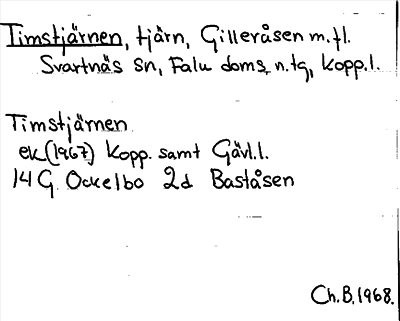 Timstjärnen, tjärn, Gilleråsen m.fl.
Svartnäs sn, Falu doms. n.tg, Kopp.l.
Timstjärnen
ek(1967) Kopp. samt Gävl.l.
14 G Ockelbo 2d Baståsen
Ch.B.1968.